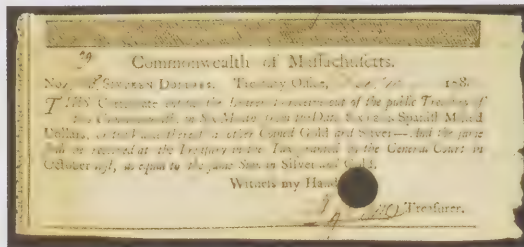 Commonwealth of Massachusetts.
No. SIXTEEN DOLLARS. Treasury Office, 178
THIS Certificate entitles the Bearer to of the public Treasury of
this Commonwealth, in Six Months from the Date, SIXTEEN Spanish Milled
Dollars, or the Value thereof in other Coined Gold and Silver—And the same
shall be received at the Treasury in the Tax, granted by the General Court in
October 1781, as equal to the same Sum in Silver and Gold.
Witness my Hand
Treasurer.